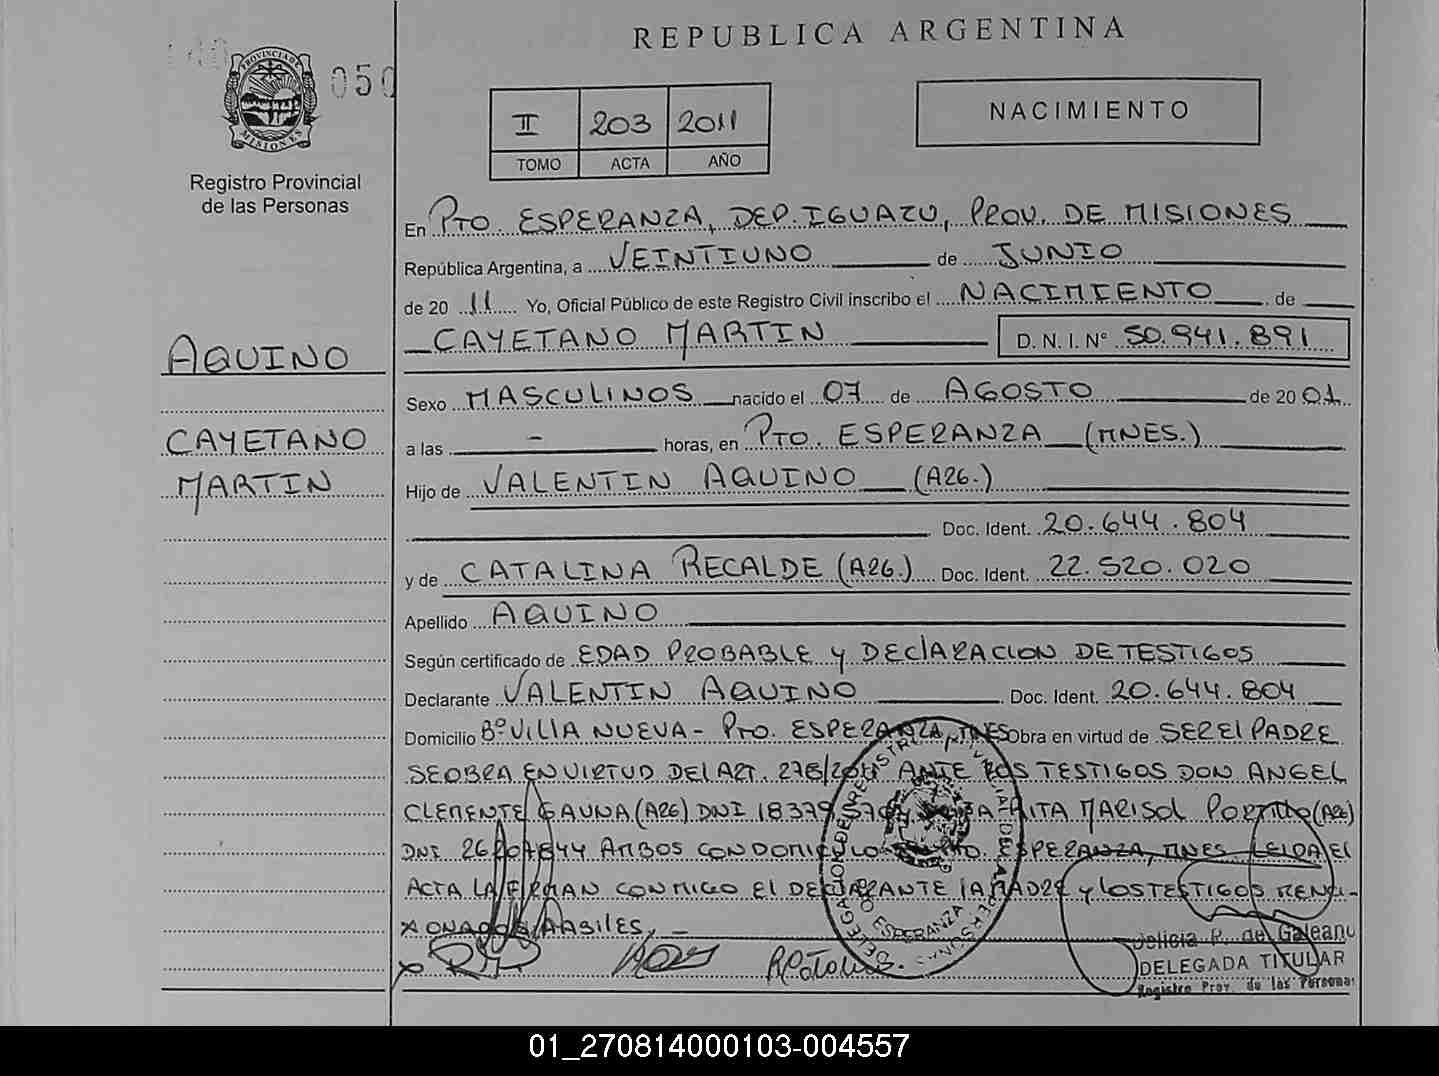 REPUBLICA ARGENTINA
050
PROVINCIA DE MISIONES
Registro Provincial
de las Personas
II 203 2011
TOMO ACTA AÑO
NACIMIENTO
AQUINO
CAYETANO
MARTIN
En PTO. ESPERANZA, DEP. IGUAZU, PROV. DE MISIONES
República Argentina, a VEINTIUNO de JUNIO
de 20 11 Yo, Oficial Público de este Registro Civil inscribo el NACIMIENTO de
CAYETANO MARTIN D. N. I. Nº 50.941.891
Sexo MASCULINOS nacido el 07 de AGOSTO de 20 01
a las - horas, en PTO. ESPERANZA (MNES.)
Hijo de VALENTIN AQUINO (A26.)
Doc. Ident. 20.644.804
y de CATALINA RECALDE (A26.) Doc. Ident. 22.520.020
Apellido AQUINO
Según certificado de EDAD PROBABLE y DEClARACION DE TESTIGOS
Declarante VALENTIN AQUINO Doc. Ident. 20.644.804
Domicilio Bº VILLA NUEVA - PTO. ESPERANZA, MNES Obra en virtud de SER El PADRE
SE OBRA EN VIRTUD DEl ART. 278/2011 ANTE lOS TESTIGOS DON ANGEL
CLEMENTE GAUNA (A26) DNI 18.379 RITA MARISOL PORTILLO (A26)
DNI 26207844 AMBOS CON DOMICILIO PTO. ESPERANZA, MNES. LEIDA El
ACTA LA FIRMAN CONMIGO El DEClARANTE lA MADRE y lOS TESTIGOS MENCI-
ONADOS HABILES. -
DELEGACION DE REGISTRO PROVINCIAL DE LAS PERSONAS
PTO. ESPERANZA
Felicia P. de Galeano
DELEGADA TITULAR
Registro Prov. de las Personas
01_270814000103-004557